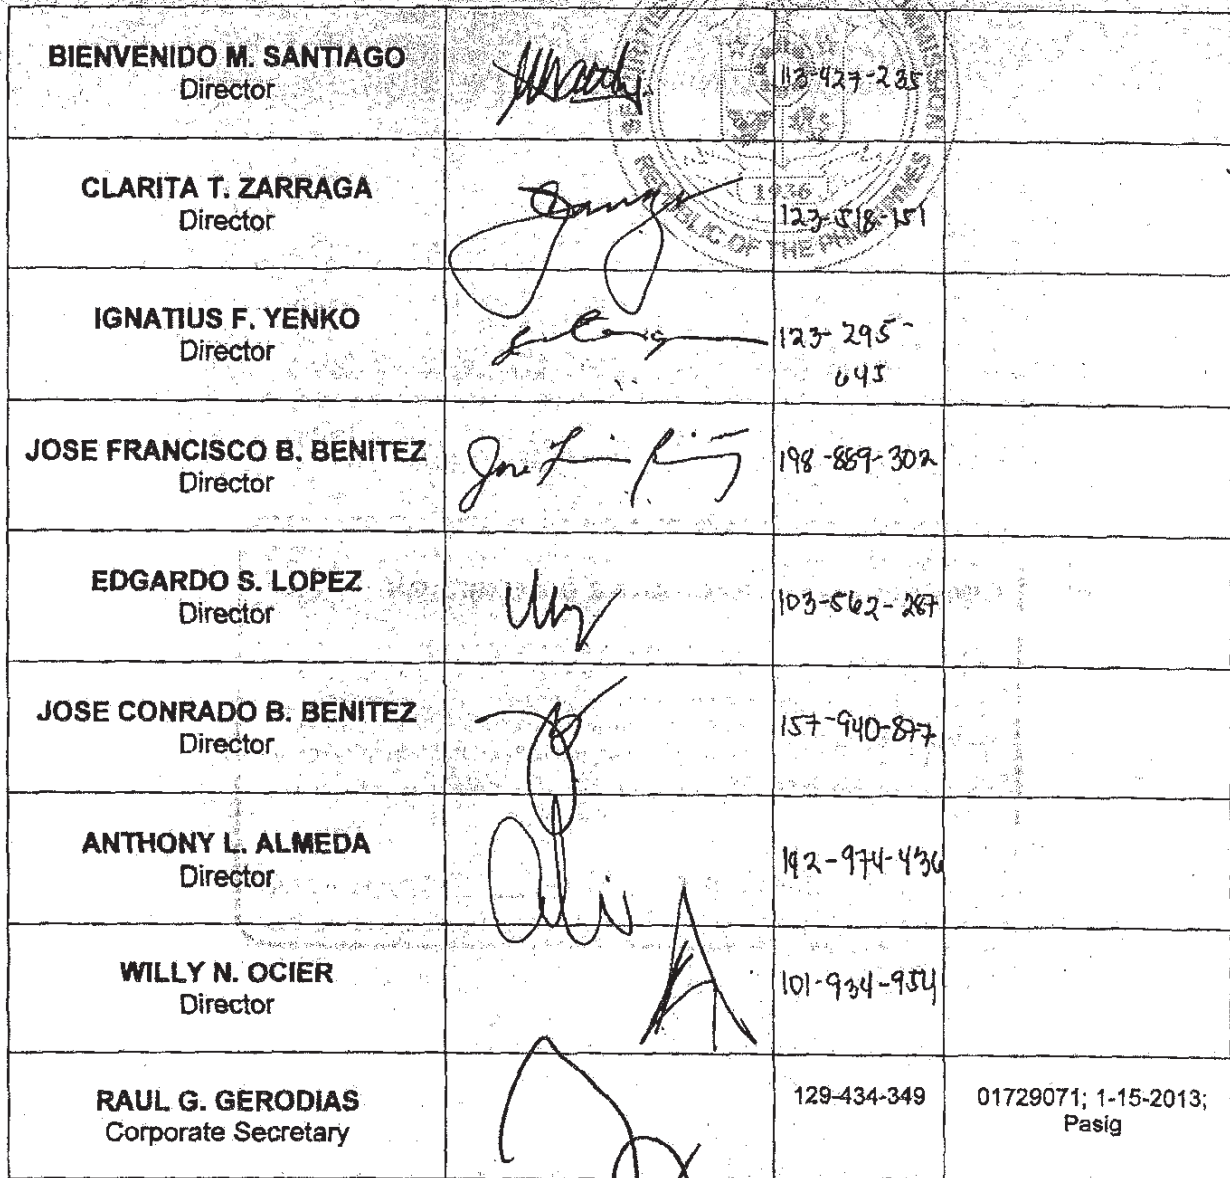 BIENVENIDO M. SANTIAGO
Director
113-427-235
CLARITA T. ZARRAGA
Director
123-518-151
1936
REPUBLIC OF THE PHILIPPINES
IGNATIUS F. YENKO
Director
123-295-
645
JOSE FRANCISCO B. BENITEZ
Director
198-889-302
EDGARDO S. LOPEZ
Director
103-562-287
JOSE CONRADO B. BENITEZ
Director
157-940-877
ANTHONY L. ALMEDA
Director
142-974-436
WILLY N. OCIER
Director
101-934-954
RAUL G. GERODIAS
Corporate Secretary
129-434-349
01729071; 1-15-2013;
Pasig